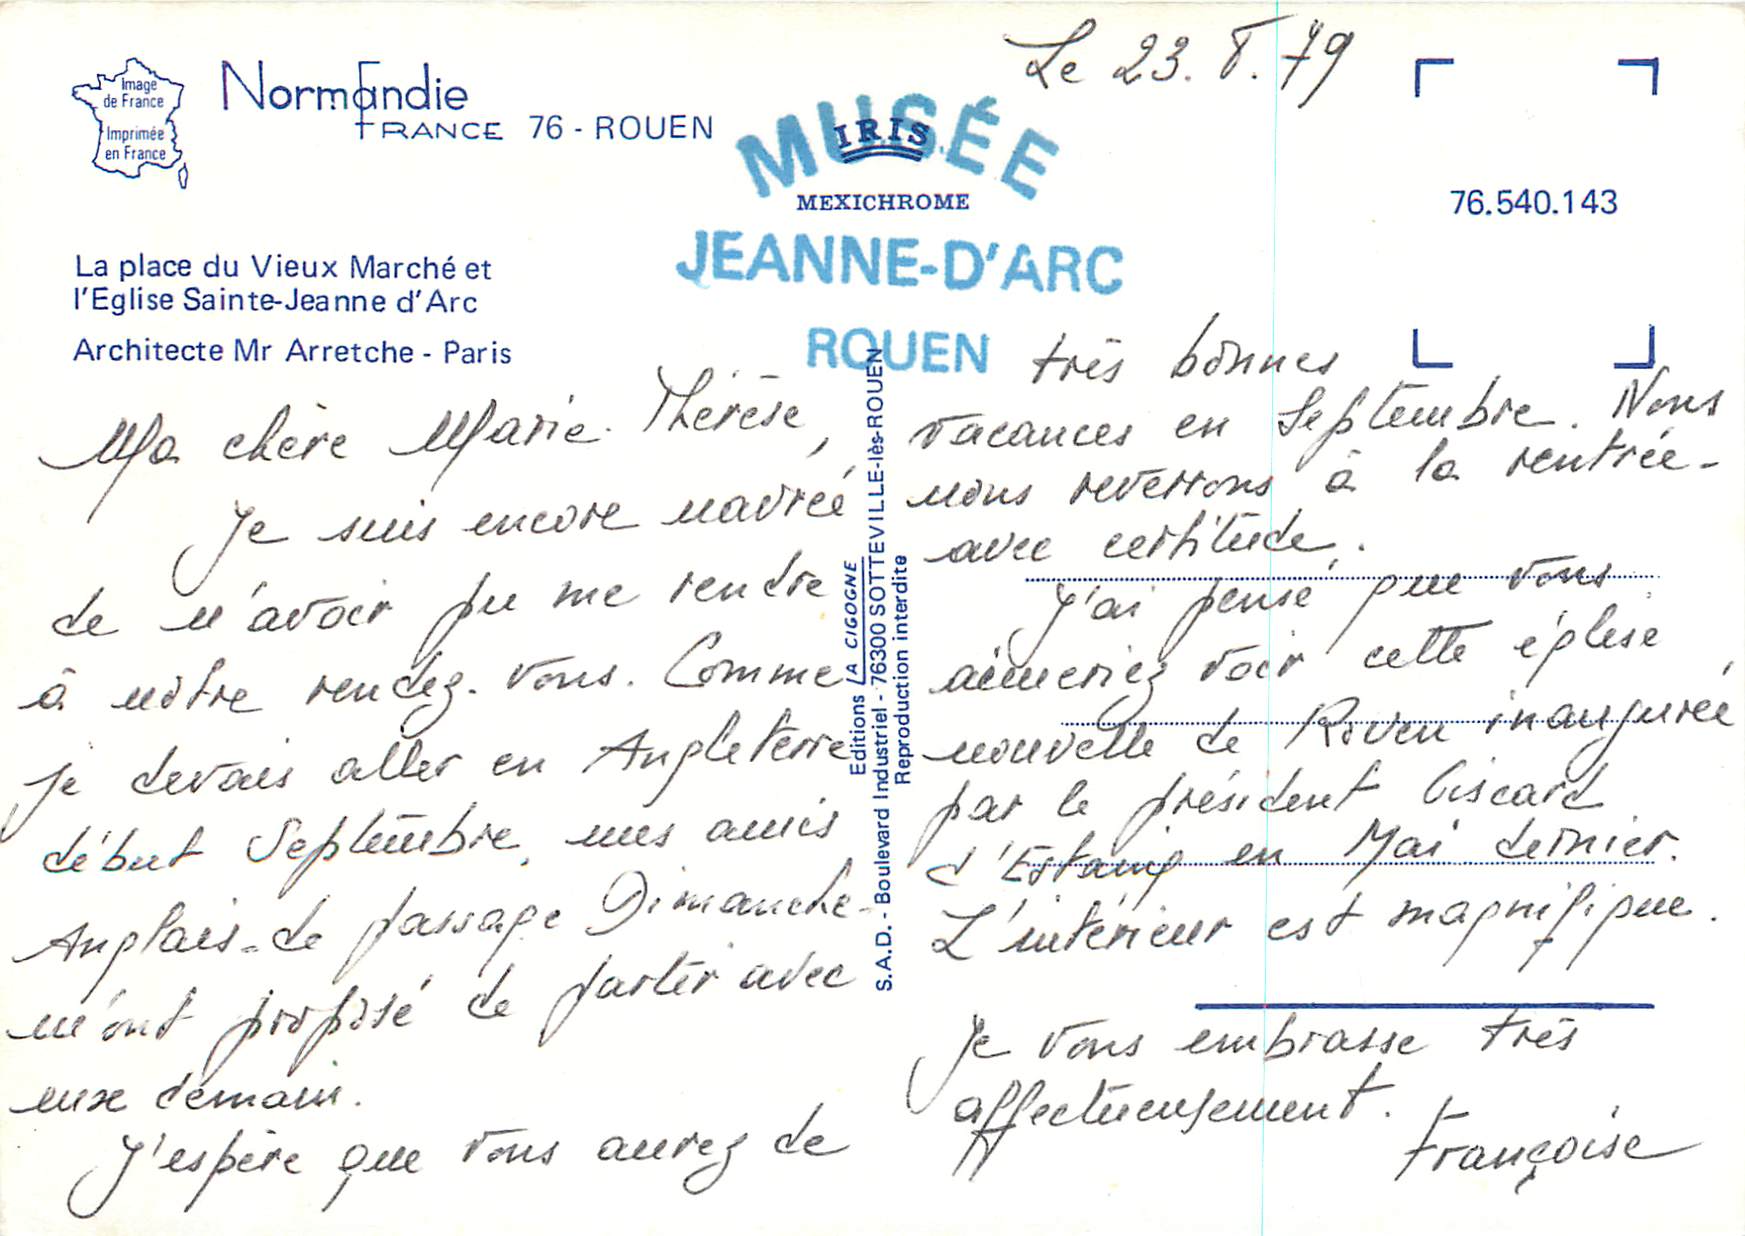 Le 23. 8. 79
Image
de France
Imprimée
en France
Normandie
FRANCE 76 - ROUEN
MUSÉE
IRIS
MEXICHROME
JEANNE-D'ARC
ROUEN
76.540.143
La place du Vieux Marché et
l'Eglise Sainte-Jeanne d'Arc
Architecte Mr Arretche - Paris
Ma chère Marie-Thérèse,
Je suis encore navrée
de n'avoir pu me rendre
à notre rendez-vous. Comme
je devais aller en Angleterre
début Septembre, mes amis
Anglais de passage Dimanche
m'ont proposé de partir avec
eux demain.
J'espère que vous aurez de
Editions LA CIGOGNE
S.A.D. - Boulevard Industriel - 76300 SOTTEVILLE-lès-ROUEN
Reproduction interdite
très bonnes
vacances en Septembre. Nous
nous reverrons à la rentrée
avec certitude.
J'ai pensé que vous
aimeriez voir cette église
nouvelle de Rouen inaugurée
par le président Giscard
d'Estaing en Mai dernier.
L'intérieur est magnifique.
Je vous embrasse très
affectueusement.
Françoise